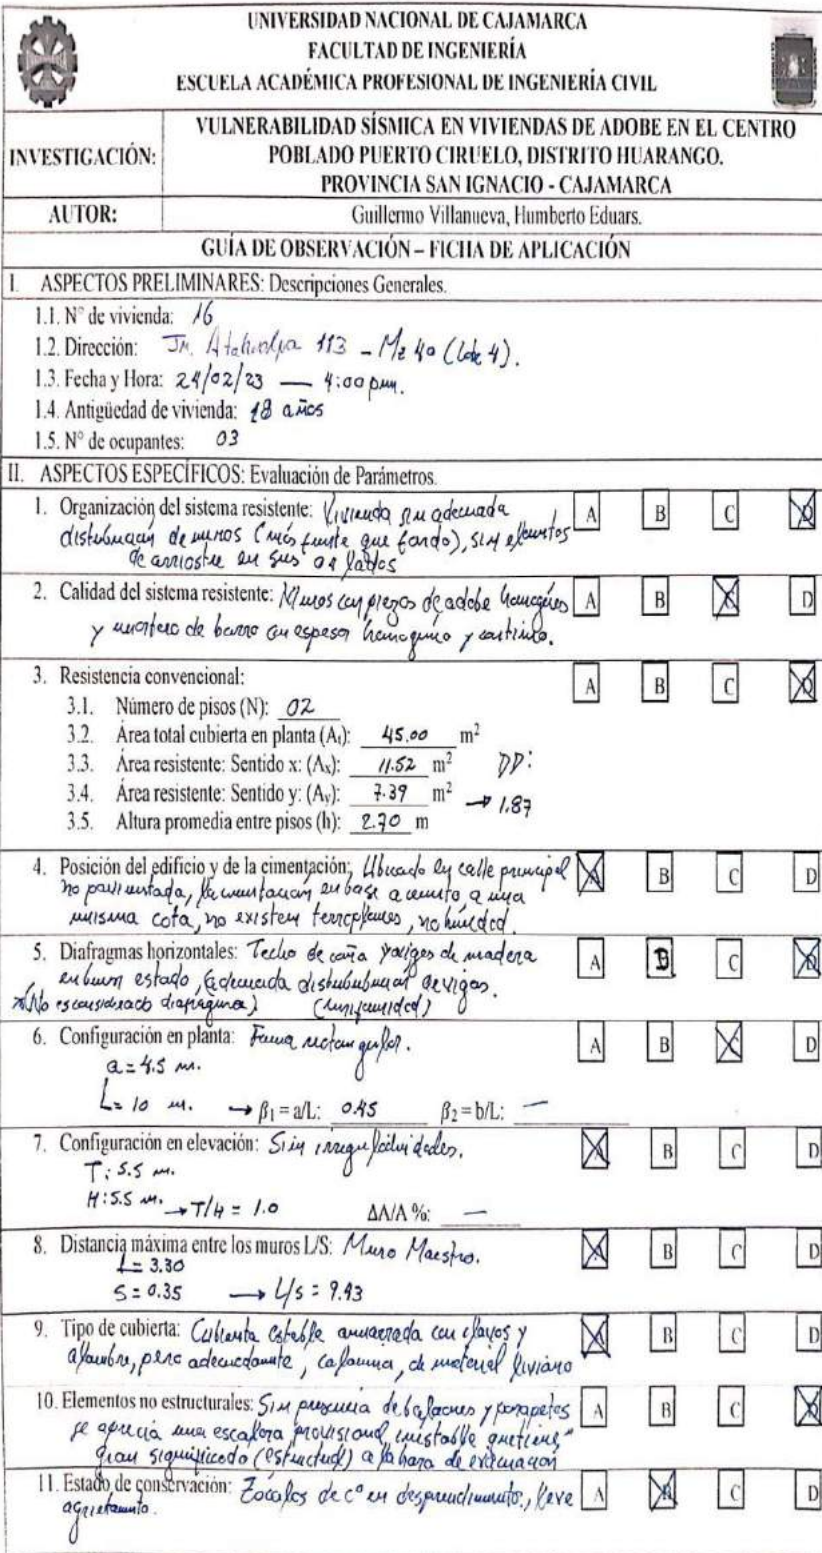 UNIVERSIDAD NACIONAL DE CAJAMARCA
FACULTAD DE INGENIERÍA
ESCUELA ACADÉMICA PROFESIONAL DE INGENIERÍA CIVIL
INVESTIGACIÓN:
VULNERABILIDAD SÍSMICA EN VIVIENDAS DE ADOBE EN EL CENTRO
POBLADO PUERTO CIRUELO, DISTRITO HUARANGO.
PROVINCIA SAN IGNACIO - CAJAMARCA
AUTOR:
Guillermo Villanueva, Humberto Eduars.
GUÍA DE OBSERVACIÓN – FICHA DE APLICACIÓN
I. ASPECTOS PRELIMINARES: Descripciones Generales.
1.1. N° de vivienda: 16
1.2. Dirección: Jr. Atahualpa 113 - Mz 40 (Lote 4).
1.3. Fecha y Hora: 24/02/23 — 4:00 pm.
1.4. Antigüedad de vivienda: 18 años
1.5. N° de ocupantes: 03
II. ASPECTOS ESPECÍFICOS: Evaluación de Parámetros.
1. Organización del sistema resistente: Vivienda sin adecuada A B C D
distribución de muros (más frente que fondo), sin elementos
de arriostre en sus 04 lados
2. Calidad del sistema resistente: Muros con piezas de adobe homogéneo A B C D
y mortero de barro con espesor homogéneo y continuo.
3. Resistencia convencional: A B C D
3.1. Número de pisos (N): 02
3.2. Área total cubierta en planta (At): 45.00 m²
3.3. Área resistente: Sentido x: (Ax): 11.52 m² DD:
3.4. Área resistente: Sentido y: (Ay): 7.39 m² → 1.87
3.5. Altura promedia entre pisos (h): 2.70 m
4. Posición del edificio y de la cimentación: Ubicado en calle principal A B C D
no pavimentada, la cimentación en base a cemento a una
misma cota, no existen terraplenes, no humedad.
5. Diafragmas horizontales: Techo de caña y vigas de madera A B C D
en buen estado, (adecuada distribución de vigas.
(No es considerado diafragma) (uniformidad)
6. Configuración en planta: Forma rectangular. A B C D
a = 4.5 m.
L = 10 m. → β1 = a/L: 0.45 β2 = b/L: —
7. Configuración en elevación: Sin irregularidades. A B C D
T: 5.5 m.
H: 5.5 m. → T/H = 1.0 ΔA/A %: —
8. Distancia máxima entre los muros L/S: Muro Maestro. A B C D
L = 3.30
S = 0.35 → L/s = 9.43
9. Tipo de cubierta: Cubierta estable amarrada con clavos y A B C D
alambre, pero adecuadamente, calamina, de material liviano
10. Elementos no estructurales: Sin presencia de balcones y parapetos A B C D
se aprecia una escalera provisional inestable que tiene
gran significado (estructural) a la hora de evacuación
11. Estado de conservación: Zócalos de c° en desprendimiento, leve A B C D
agrietamiento.